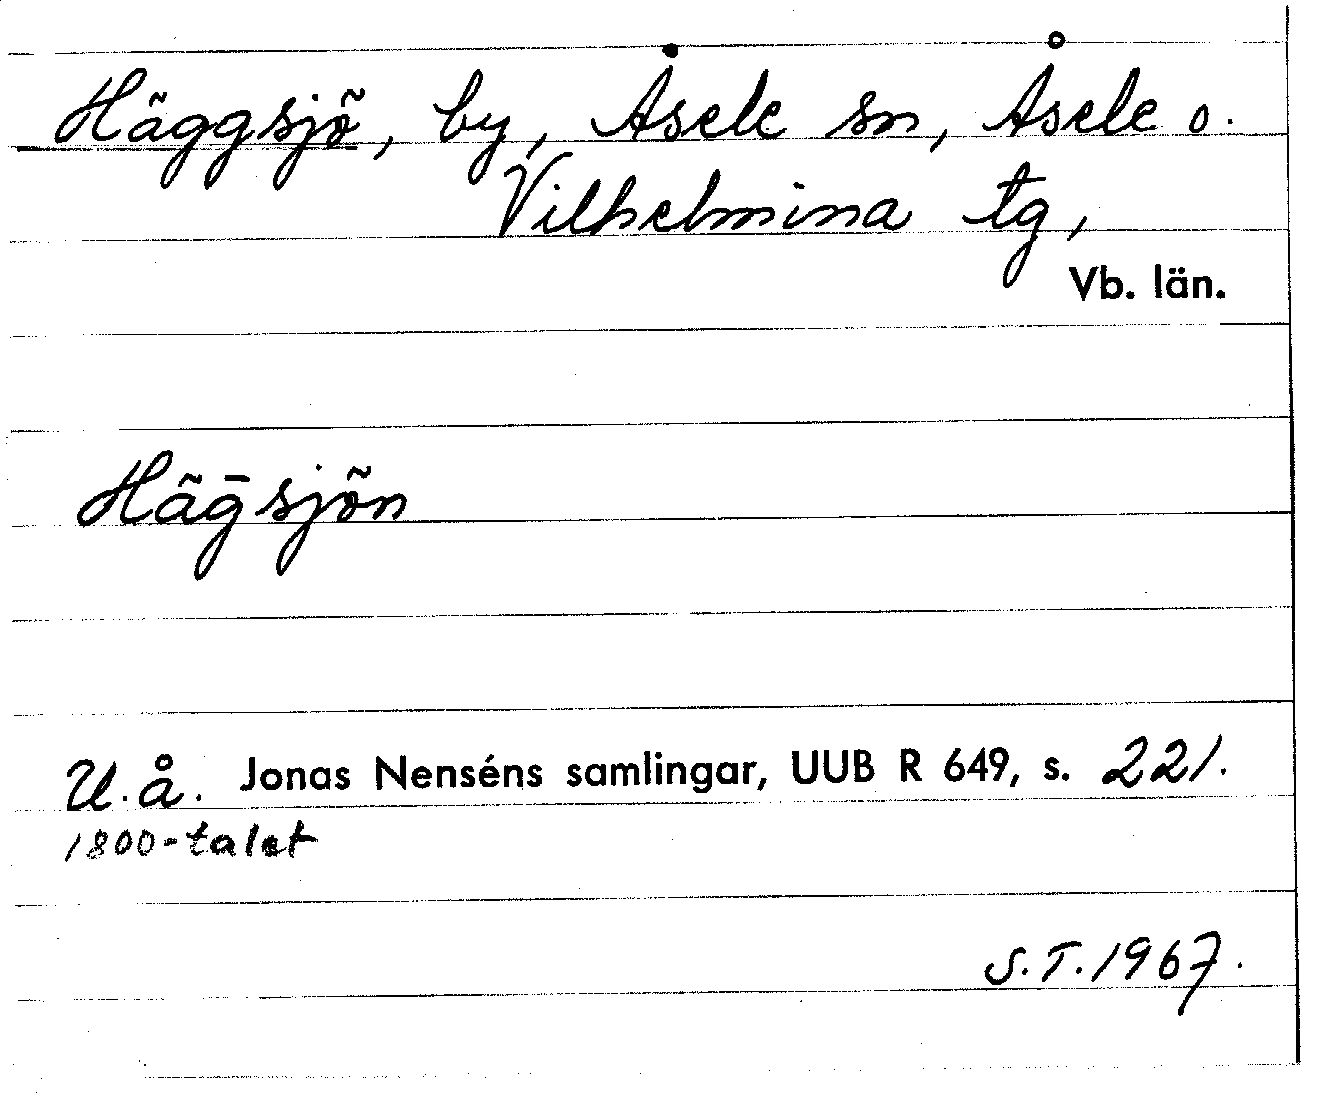 Häggsjö, by, Åsele sn, Åsele o.
Vilhelmina tg,
Vb. län.
Häḡsjön
U.å. Jonas Nenséns samlingar, UUB R 649, s. 221.
1800-talet
S.T. 1967.